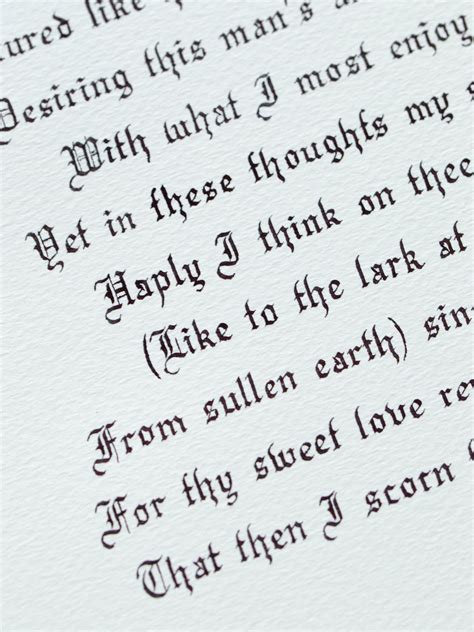 tured like
Desiring this man's a
With what I most enjoy
Yet in these thoughts my s
Haply I think on thee
(Like to the lark at
From sullen earth) sin
For thy sweet love re
That then I scorn